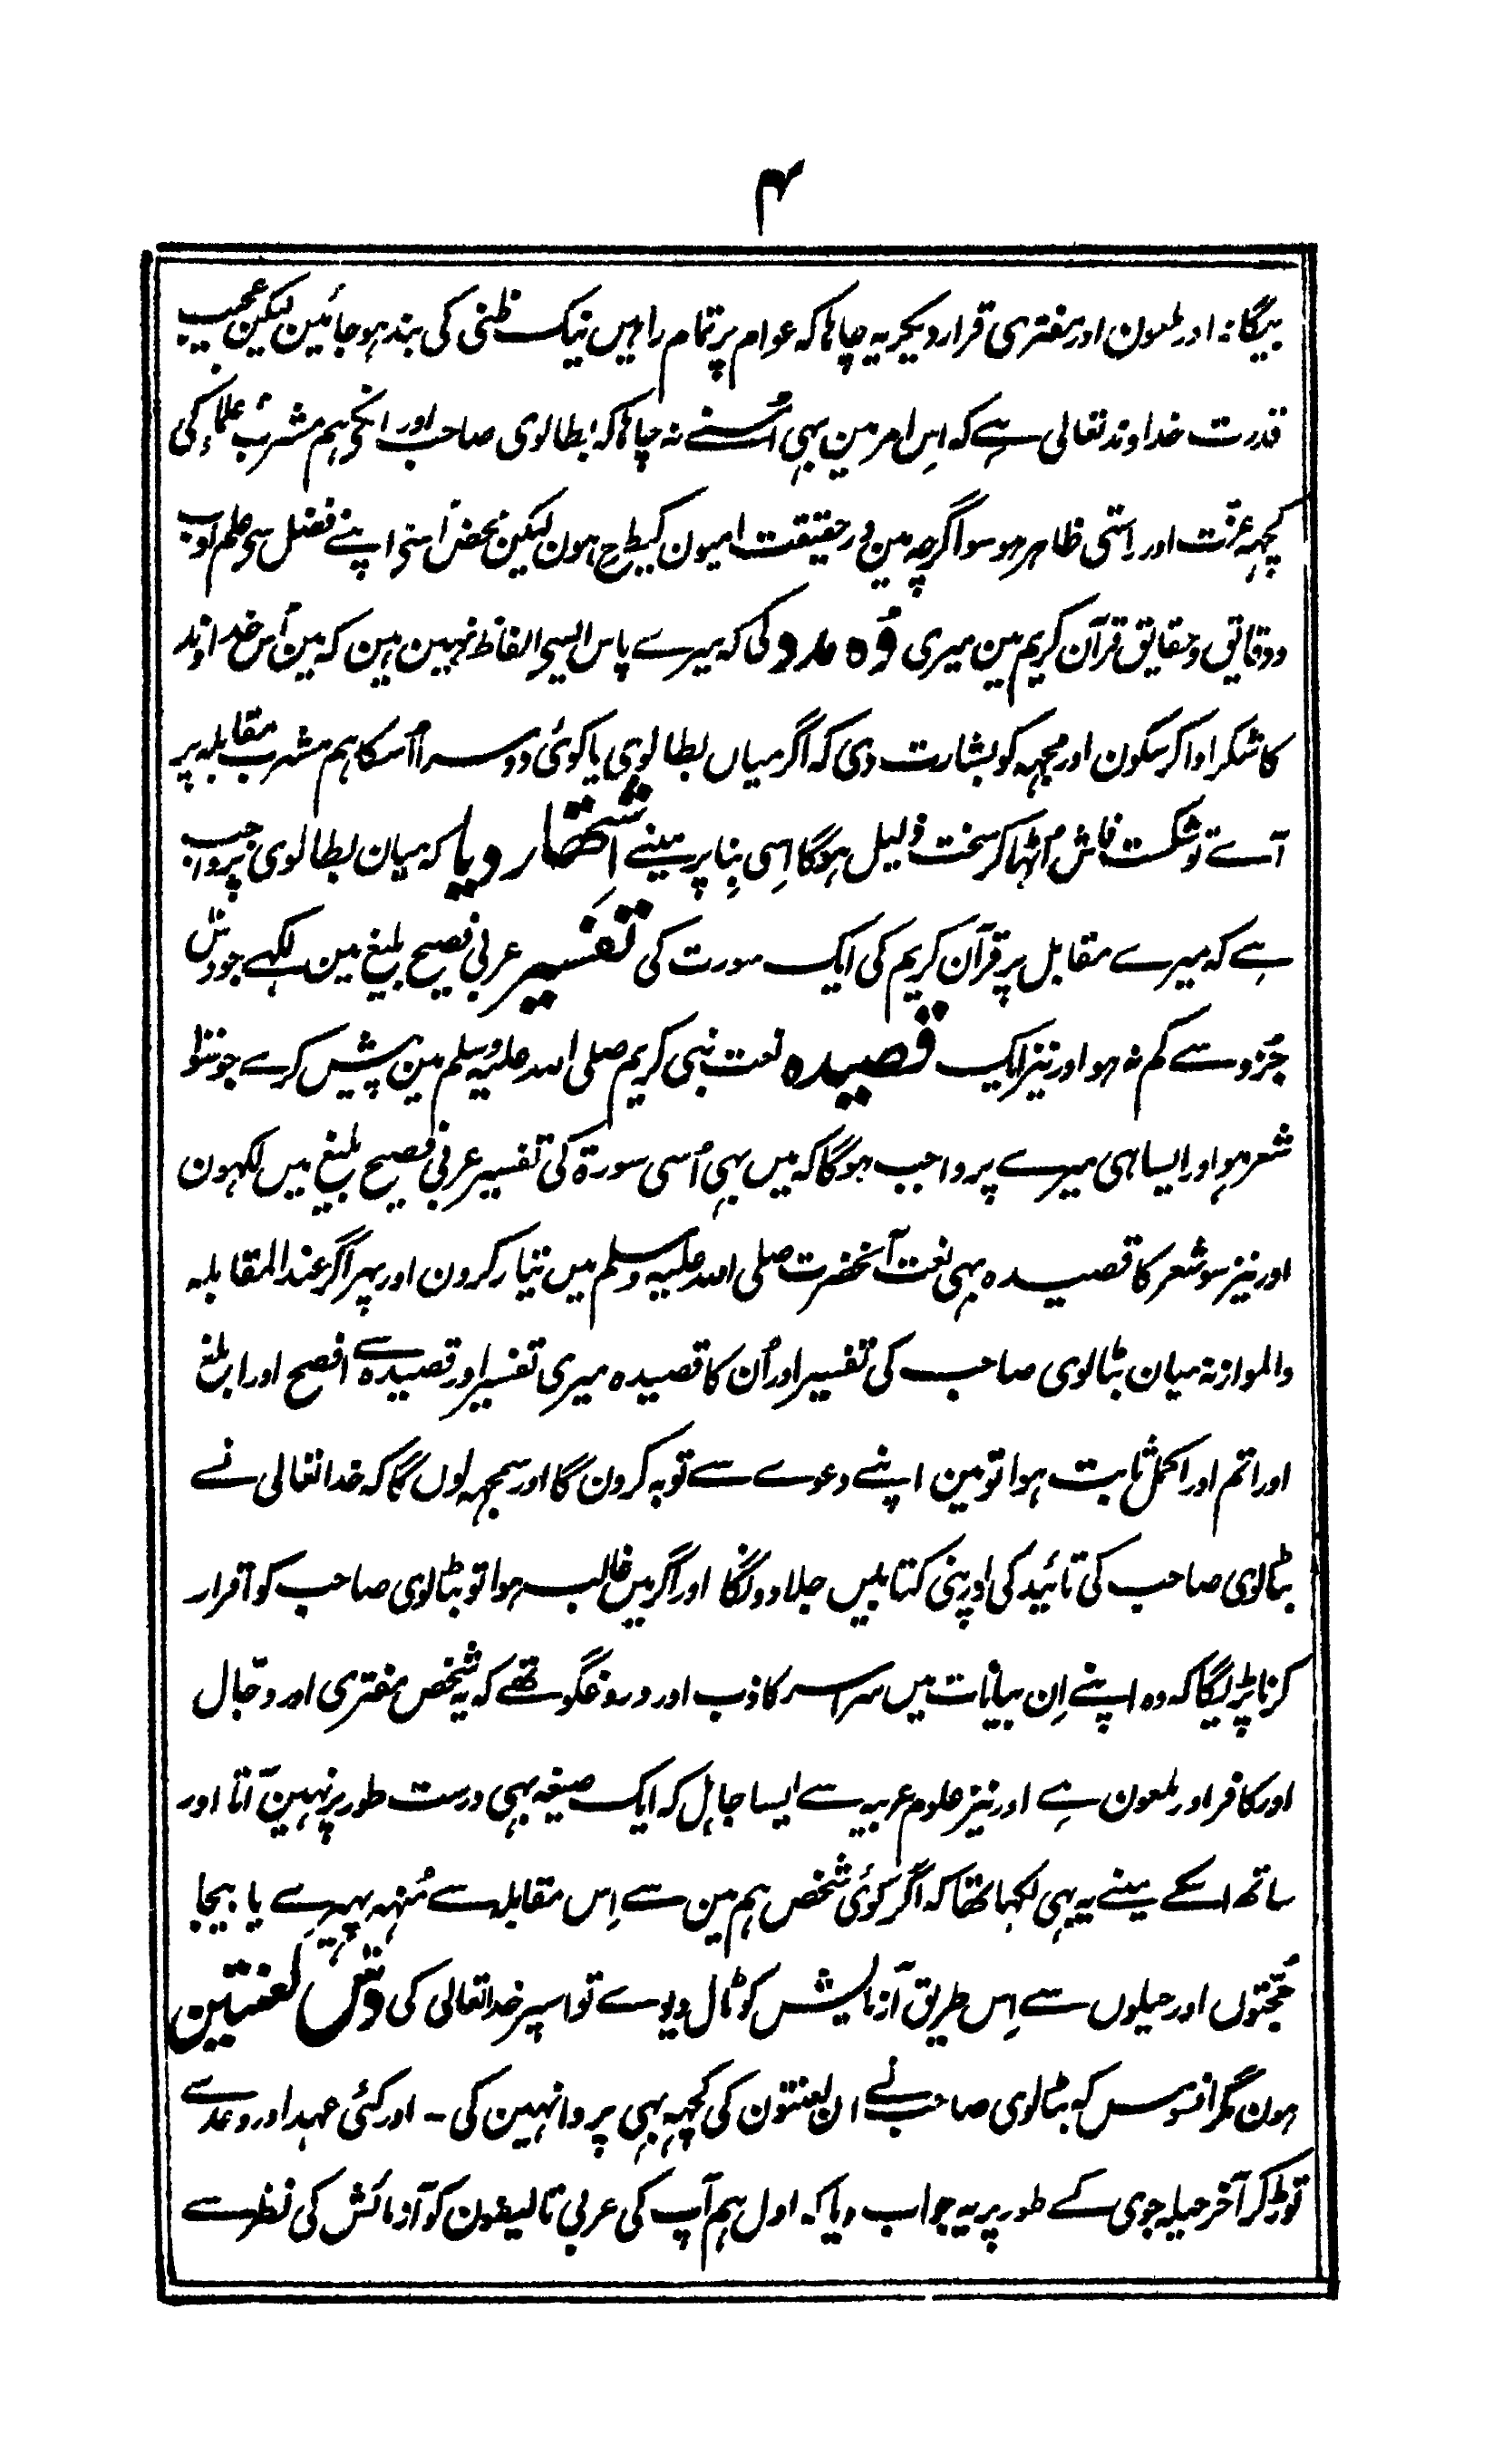 ۴
بیگانہ اور ملعون اور مفتری قرار دیکر یہ چاہا کہ عوام پر تمام راہیں نیک ظنی کی بند ہو جائیں لیکن عجیب
قدرت خداوند تعالی ہے کہ اِس امر مین بہی اُسنے نہ چاہا کہ بطالوی صاحب اور انکی ہم مشرب علماء کی
کچہہ عزّت اور راستی ظاہر ہو سو اگرچہ مین در حقیقت امیون کیطرح ہون لیکن محض اُسنی اپنے فضل سی علم ادب
و دقایق و حقایق قرآن کریم مین میری وُہ مدد کی کہ میرے پاس ایسی الفاظ نہین ہین کہ مین اُس خداوند
کا شکر ادا کر سکون اور مجہہ کو بشارت دی کہ اگر میاں بطالوی یا کوئی دوسرا اُسکا ہم مشرب مقابلہ پر
آے تو شکست فاش اُٹہا کر سخت ذلیل ہوگا اِسی بِنا پر مینے اشتہار دیا کہ میان بطالوی پر واجب
ہے کہ میرے مقابل پر قرآن کریم کی ایک سورت کی تفسیر عربی فصیح بلیغ مین لکہے جو دس
جُزو سے کم نہ ہو اور نیز ایک قصیدہ نعت نبی کریم صلی اللہ علیہ وسلم مین پیش کرے جو سَو
شعر ہو اور ایسا ہی میرے پر واجب ہوگا کہ میں بہی اُسی سورۃ کی تفسیر عربی فصیح بلیغ میں لکہون
اور نیز سو شعر کا قصیدہ بہی نعت آنحضرت صلی اللہ علیہ وسلم میں تیار کرون اور پہر اگر عند المقابلہ
والموازنہ میان بٹالوی صاحب کی تفسیر اور اُن کا قصیدہ میری تفسیر اور قصیدہ سے افصح اور ابلغ
اور اتم اور اکمل ثابت ہوا تو مین اپنے دعوے سے توبہ کرون گا اور سمجہہ لوں گا کہ خدا تعالی نے
بٹالوی صاحب کی تائید کی اور اپنی کتابیں جلا دونگا اور اگر میں غالب ہوا تو بٹالوی صاحب کو اقرار
کرنا پڑیگا کہ وہ اپنے اِن بیانات میں سراسر کاذب اور دروغگو تھے کہ یہ شخص مفتری اور دجّال
اور کافر اور ملعون ہے اور نیز علوم عربیہ سے ایسا جاہل کہ ایک صیغہ بہی درست طور پر نہین آتا اور
ساتھ اسکے مینے یہ بہی لکہا تھا کہ اگر کوئی شخص ہم مین سے اِس مقابلہ سے مُنہہ پہیرے یا بیجا
حُجّتوں اور حیلوں سے اِس طریق آزمایش کو ٹال دیوے تو اسپر خدا تعالی کی دس لعنتین
ہون مگر افسوس کہ بٹالوی صاحب نے ان لعنتون کی کچہہ بہی پروا نہین کی ۔ اور کئی عہد اور وعدے
توڑ کر آخر حیلہ جوی کے طور پر یہ جواب دیا کہ اول ہم آپ کی عربی تالیفون کو آزمائش کی نظر سے